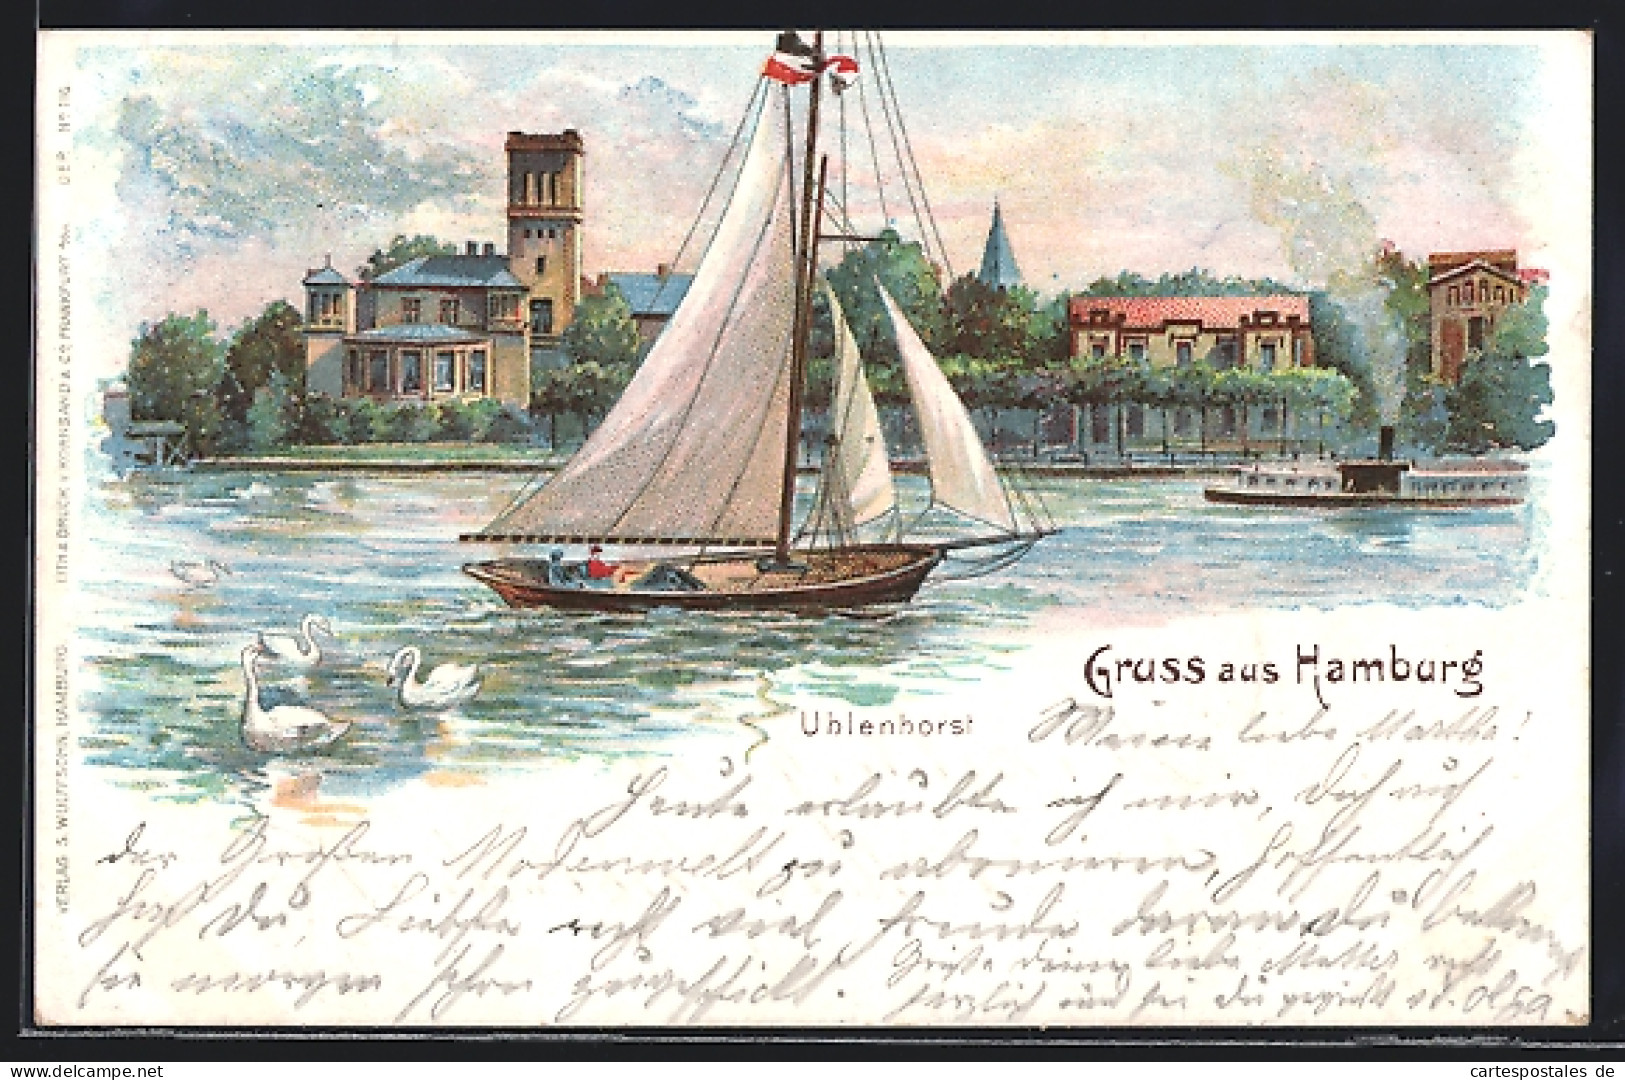 Gruss aus Hamburg
Uhlenhorst
Meine liebe Martha!
Heute erlaubte ich mir, Dich auf
der Großen Modenwelt zu abonieren, hoffentlich
hast Du, Liebste recht viel Freude daran. Du bekommst
sie morgen schon zugeschickt.
Grüße Deine liebe Mutter recht
herzlich und sei Du geküßt v. d. Olga
VERLAG S. WULFFSOHN, HAMBURG.
LITH. & DRUCK V. KORNSAND & CO. FRANKFURT a/M.
GER. No
cartespostales de